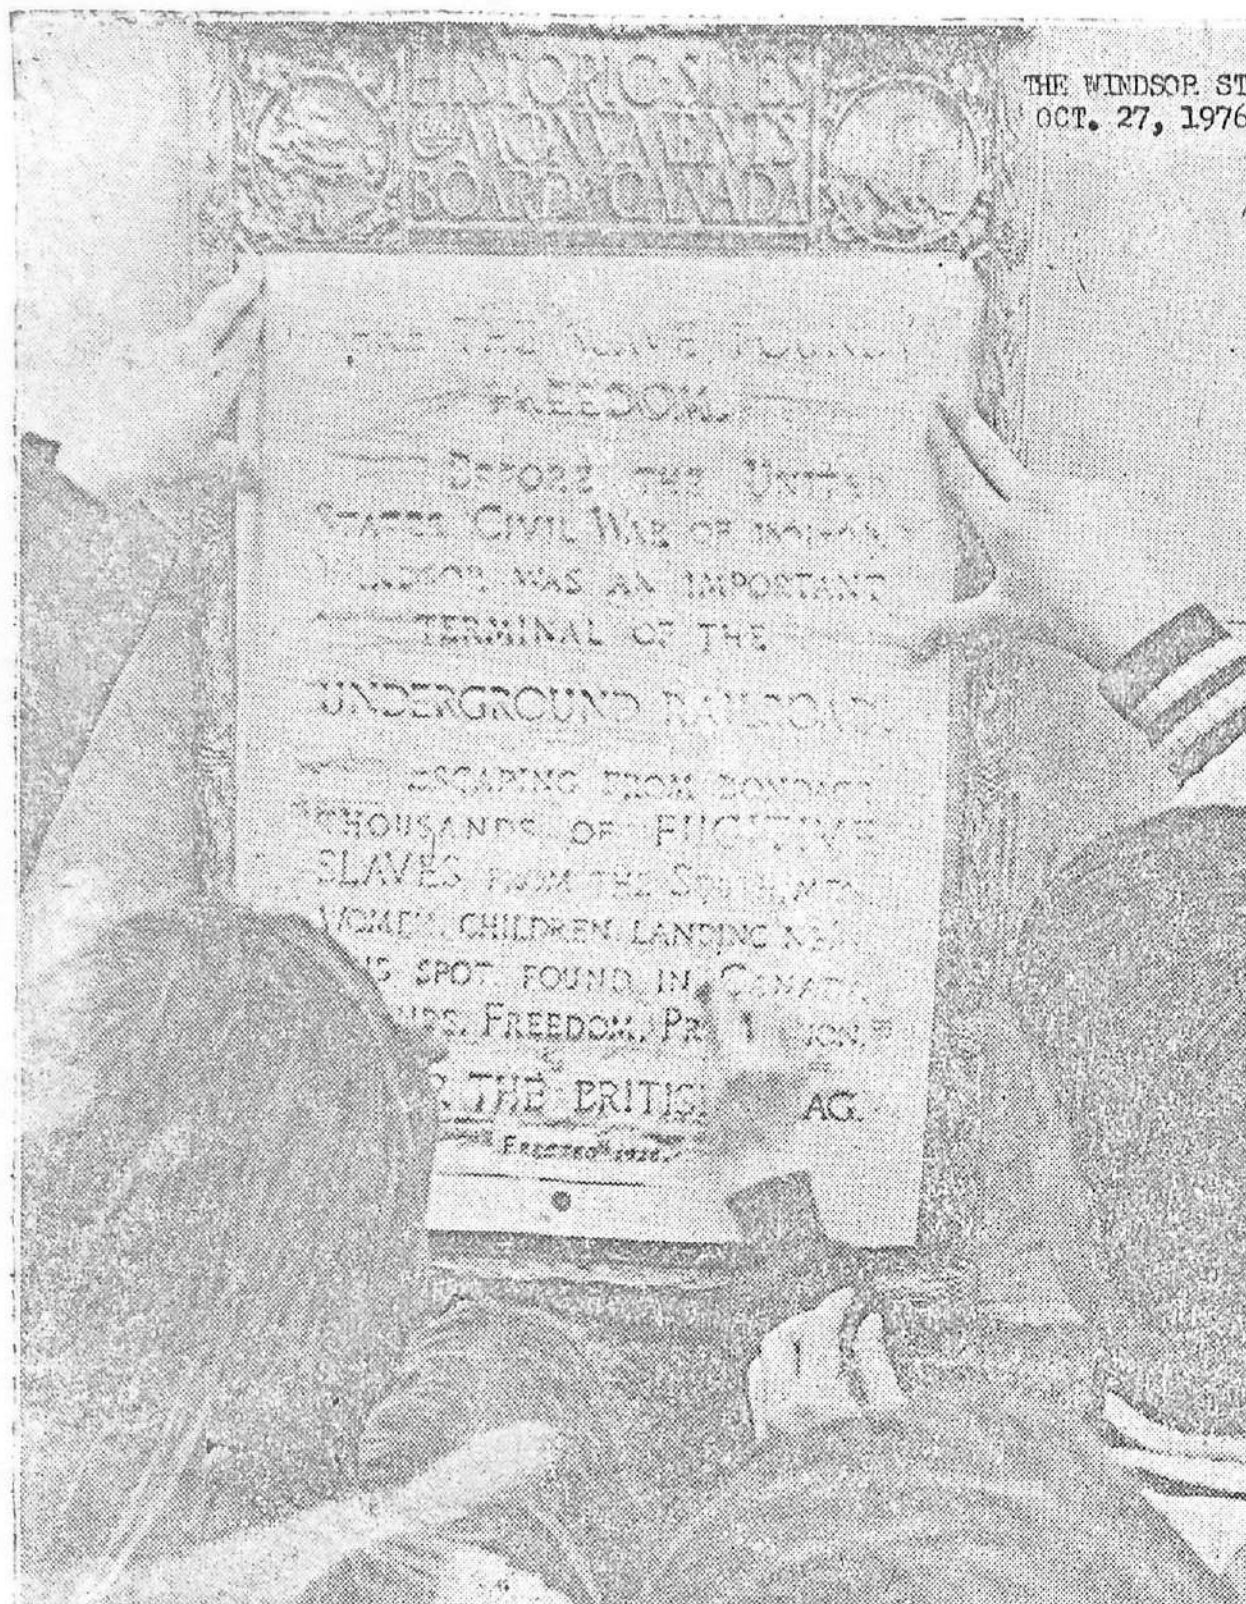 THE WINDSOR ST
OCT. 27, 1976
HISTORIC SITES
AND MONUMENTS
BOARD CANADA
THE SLAVE FOUND
FREEDOM.
BEFORE THE UNITED
STATES CIVIL WAR OF
WINDSOR WAS AN IMPORTANT
TERMINAL OF THE
UNDERGROUND RAILROAD.
ESCAPING FROM BONDAGE
THOUSANDS OF FUGITIVE
SLAVES FROM THE SOUTH, MEN,
WOMEN, CHILDREN, LANDING NEAR
IS SPOT FOUND IN CANADA
FREEDOM, PR ION,
THE BRITISH AG.
ERECTED 1928.